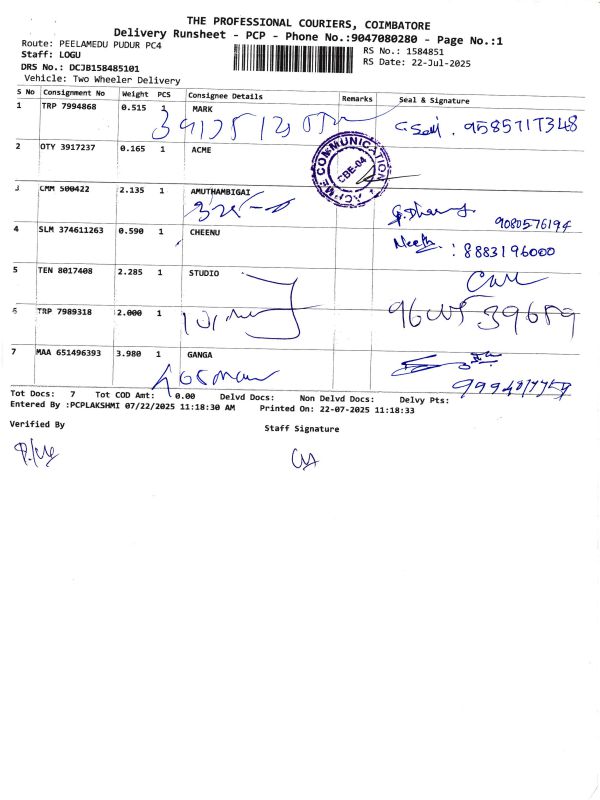 THE PROFESSIONAL COURIERS, COIMBATORE
Delivery Runsheet - PCP - Phone No.:9047080280 - Page No.:1
Route: PEELAMEDU PUDUR PC4 RS No.: 1584851
Staff: LOGU RS Date: 22-Jul-2025
DRS No.: DCJB158485101
Vehicle: Two Wheeler Delivery
S No Consignment No Weight PCS Consignee Details Remarks Seal & Signature
1 TRP 7994868 0.515 1 MARK
2 OTY 3917237 0.165 1 ACME
COMMUNICATION
CBE-04
3 CMM 500422 2.135 1 AMUTHAMBIGAI
9080576194
4 SLM 374611263 0.590 1 CHEENU : 8883196000
5 TEN 8017408 2.285 1 STUDIO
6 TRP 7989318 2.000 1
7 MAA 651496393 3.980 1 GANGA
Tot Docs: 7 Tot COD Amt: 0.00 Delvd Docs: Non Delvd Docs: Delvy Pts:
Entered By :PCPLAKSHMI 07/22/2025 11:18:30 AM Printed On: 22-07-2025 11:18:33
Verified By Staff Signature